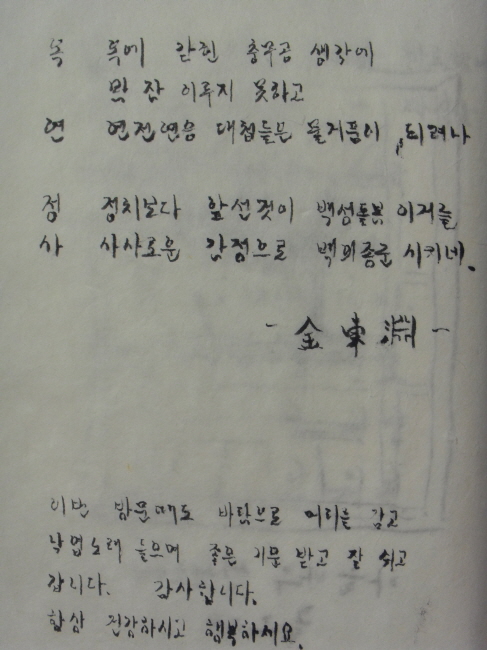 옥 옥에 갇힌 충무공 생각에
밤 잠 이루지 못하고
연 연전연승 대첩들은 물거품이 되려나
정 정치보다 앞선것이 백성들 이거늘
사 사사로운 감정으로 백의종군 시키네.
- 金東淵 -
이번 방문때도 바람으로 머리를 감고
낙엽노래 들으며 좋은 기운 받고 잘 쉬고
갑니다. 감사합니다.
항상 건강하시고 행복하세요.